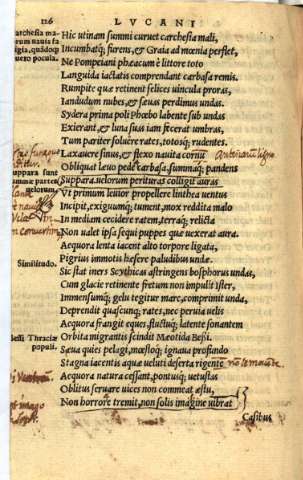 126 LVCANI
Hic utinam summi curuet carchesia mali,
Incumbatq; furens, & Graia ad mœnia perflet,
Ne Pompeiani phæacum è littore toto
Languida iactatis comprendant carbasa remis.
Rumpite quæ retinent felices uincula proras,
Iandudum nubes, & sæuas perdimus undas.
Sydera prima poli Phœbo labente sub undas
Exierant, & luna suas iam fecerat umbras,
Tum pariter soluere rates, totosq; rudentes.
Laxauere sinus, & flexo nauita cornu
Obliquat læuo pede carbasa, summaq; pandens
Suppara uelorum perituras colligit auras
Vt primum leuior propellere lintea uentus
Incipit, exiguumq; tument, mox reddita malo
In mediam cecidere ratem, terraq; relicta
Non ualet ipsa sequi puppes quæ uexerat aura.
Aequora lenta iacent alto torpore ligata,
Pigrius immotis hæsere paludibus undæ.
Sic stat iners Scythicas astringens bosphorus undas,
Cum glacie retinente fretum non impulit ister,
Immensumq; gelu tegitur mare, comprimit unda,
Deprendit quascunq; rates, nec peruia uelis
Aequora frangit eques, fluctuq; latente sonantem
Orbita migrantis scindit Mæotida Bessi.
Sæua quies pelagi, mæstoq; ignaua profundo
Stagna iacentis aquæ ueluti deserta rigente
Aequora natura cessant, pontusq; uetustas
Oblitus seruare uices non commeat æstu,
Non horrore tremit, non solis imagine uibrat
Casibus
Similitudo.
Bessi Thraciæ
populi.